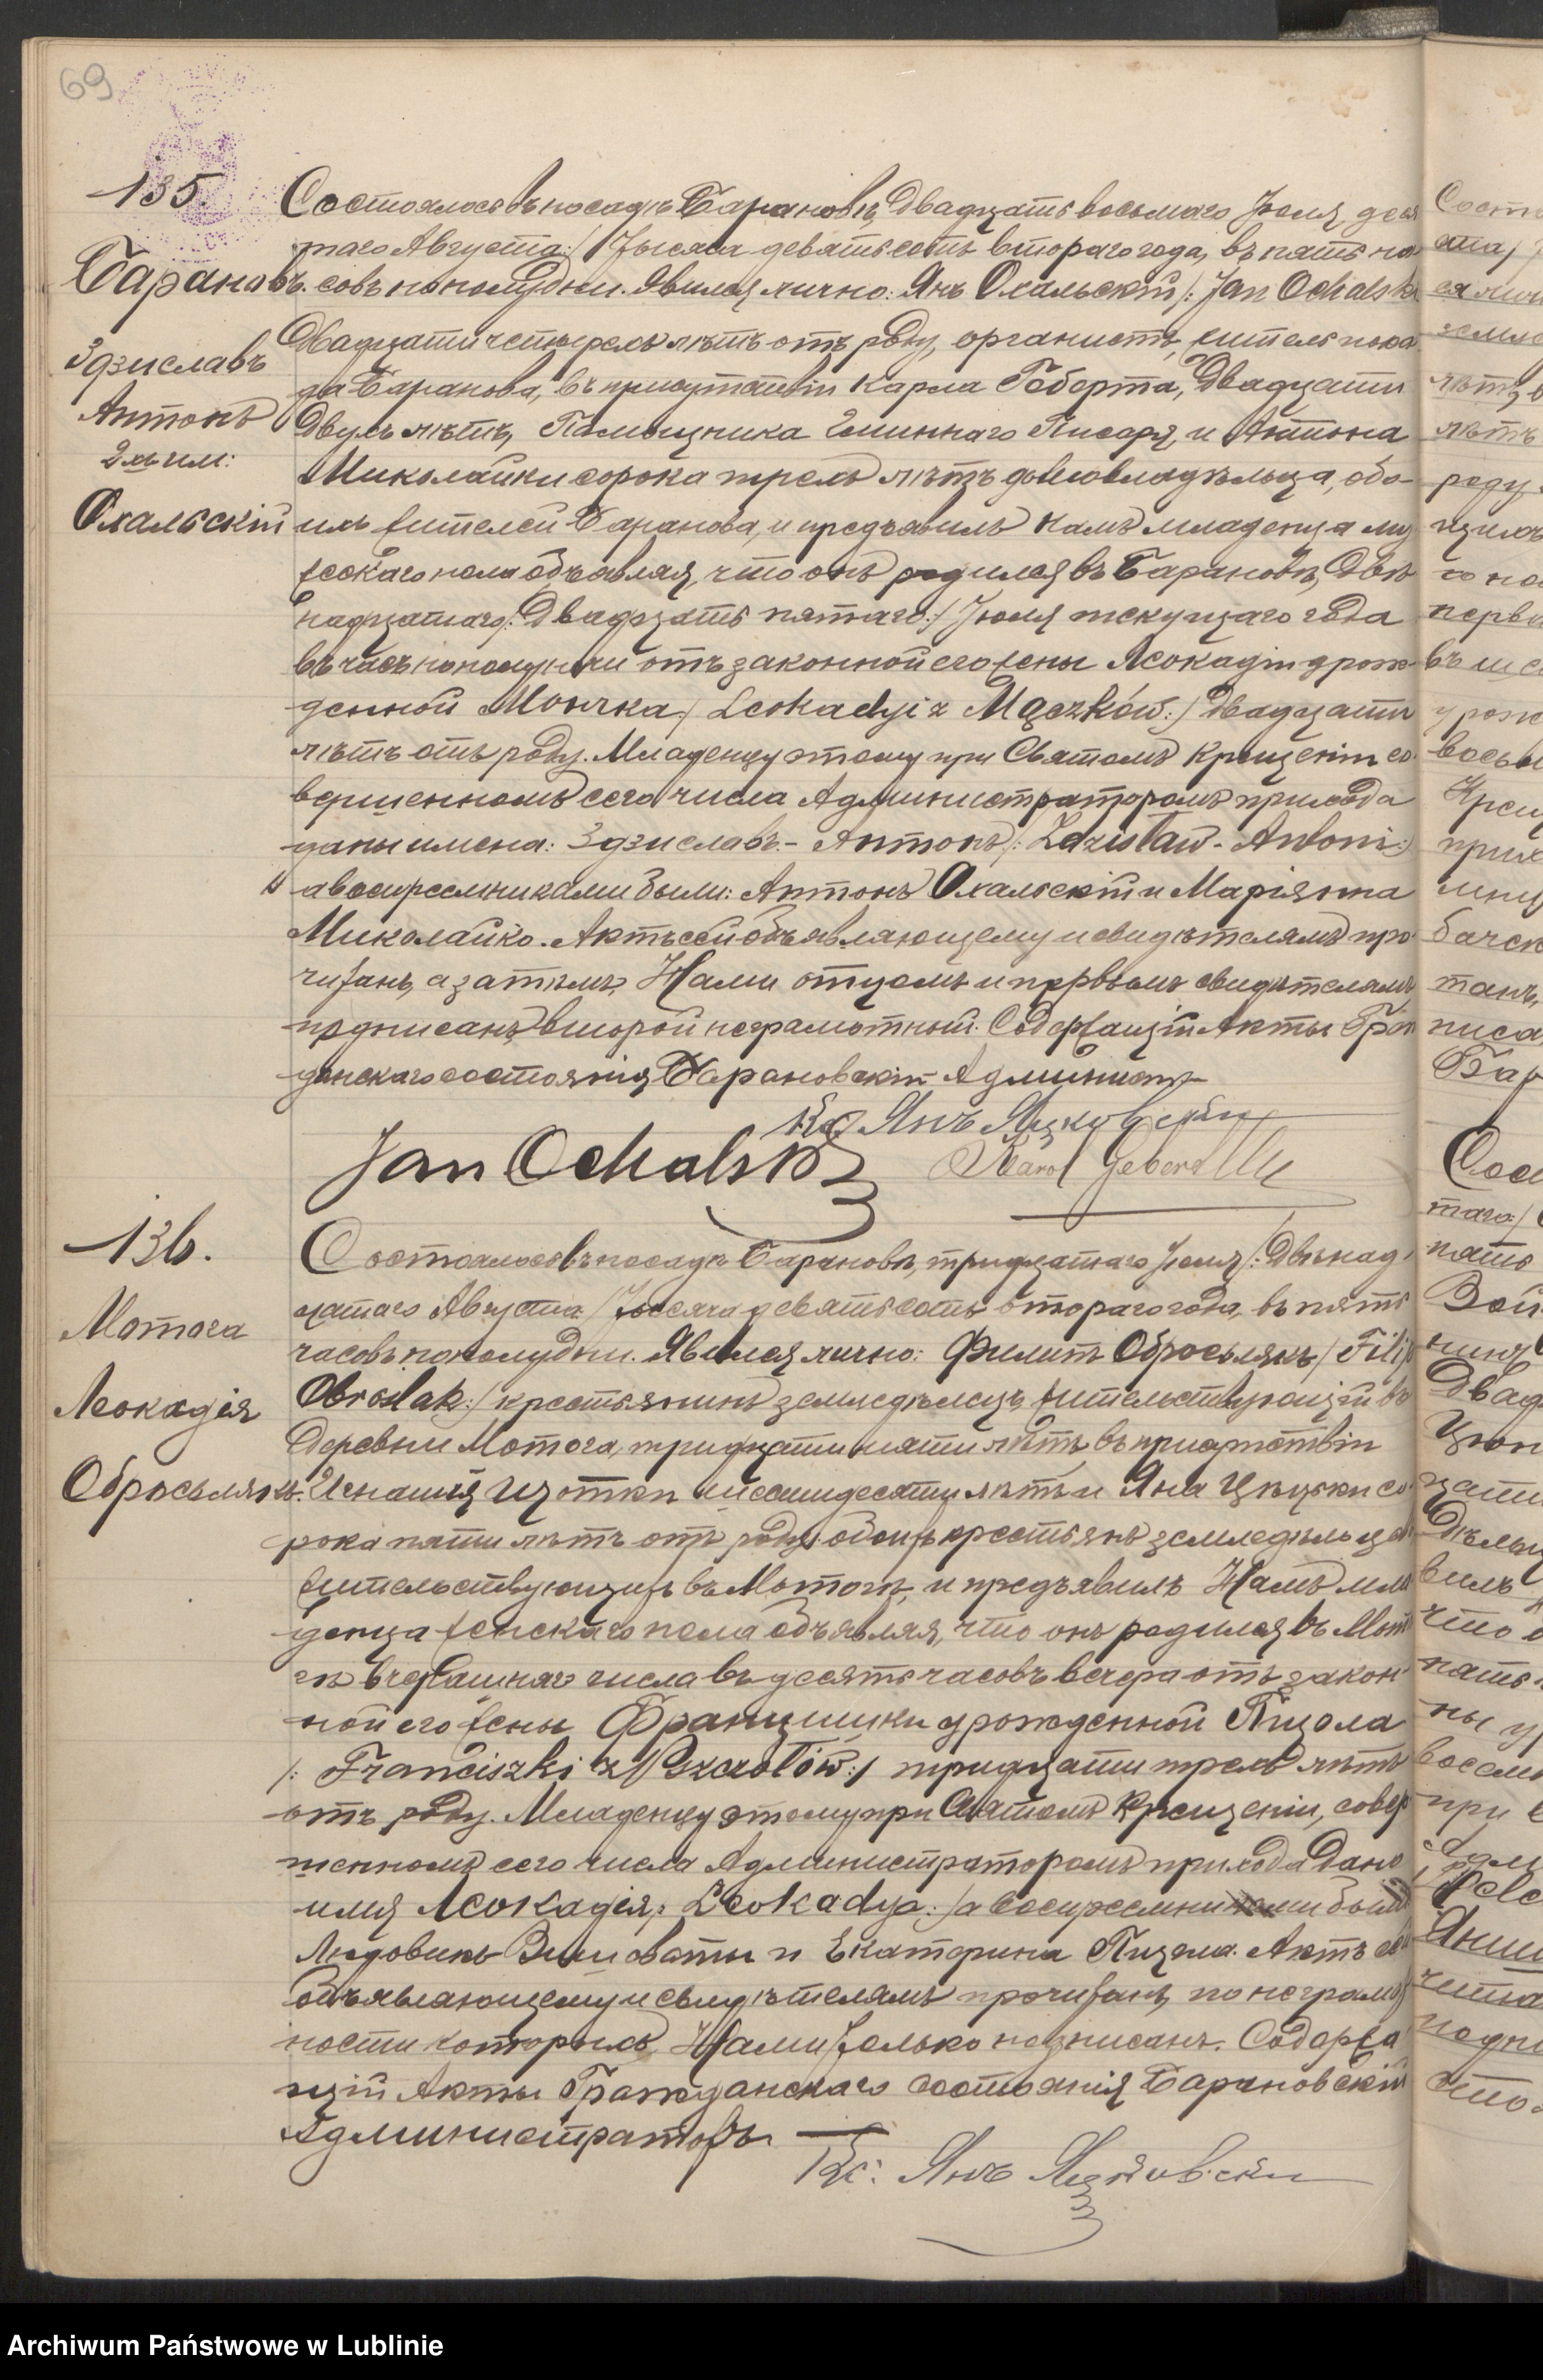 69
135.
Барановъ.
Здзиславъ
Антонъ
2хъ им:
Охальскій
Состоялось въ посадѣ Барановѣ, Двадцать восьмаго Іюля, деся
таго Августа:/ Тысяча девятьсотъ втораго года, въ пять ча-
совъ пополудни. Явился лично: Янъ Охальскій /: Jan Ochalski
Двадцати четырехъ лѣтъ отъ роду, органистъ, житель поса
да Баранова, въ присутствіи Карла Геберта, Двадцати
Двухъ лѣтъ, Помощника Гминнаго Писаря, и Антона
Миколайки сорока трехъ лѣтъ домовладѣльца, обо-
ихъ жителей Баранова, и предъявилъ Намъ младенца му
жескаго пола объявляя, что онъ родился въ Барановѣ, Двѣ
надцатаго /: Двадцать пятаго:/ Іюля текущаго года
въ часъ пополуночи отъ законной его жены Леокадіи урож-
денной Мончка /: Leokadyi z Mączków:/ Двадцати
лѣтъ отъ роду. Младенцу этому при Святомъ Крещеніи со-
вершенномъ сего числа Администраторомъ прихода
даны имена: Здзиславъ - Антонъ /: Zdzisław - Antoni:/
а воспреемниками были: Антонъ Охальскій и Маріянна
Миколайко. Актъ сей объявляющему и свидѣтелямъ про-
читанъ, а затѣмъ, Нами отцомъ и первымъ свидѣтелямъ
подписанъ второй неграмотный. Содержащій Акты Граж
данскаго состоянія Барановскій Админист
Кс. Янъ Яцковски
Jan Ochalski
Karol Gebert
136.
Мотога
Леокадія
Обросьлякъ.
Состоялось въ посадѣ Барановѣ, тридцатаго Іюля /: Двѣнад
цатаго Августа:/ Тысяча девятьсотъ втораго года, въ пять
часовъ пополудни. Явился лично: Филипъ Обросьлякъ /: Filip
Obroślak:/ крестьянинъ земледѣлецъ жительствующій въ
Деревни Мотога, тридцати пяти лѣтъ, въ присутствіи
Игнатія шестидесяти лѣтъ и Яна со
рока пяти лѣтъ отъ роду обоихъ крестьянъ земледѣльцевъ
жительствующихъ въ Мотогѣ, и предъявилъ Намъ мла
денца женскаго пола объявляя, что онъ родился въ Мото
гѣ вчерашняго числа въ десять часовъ вечера отъ закон-
ной его жены Францишки урожденной Пщола
/: Franciszki z Pszczołów:/ тридцати трехъ лѣтъ
отъ роду. Младенцу этому при Святомъ Крещеніи, совер
шенномъ сего числа Администраторомъ прихода Дано
имя Леокадія /: Leokadya:/ а воспреемниками были
Людовикъ и Екатерина Пщола. Актъ сей
Объявляющему и свидѣтелямъ прочитанъ, по неграмот
ности которыхъ Нами только подписанъ. Содержа
щій Акты Гражданскаго состоянія Барановскій
Администраторъ.
Кс: Янъ Яцковски
Archiwum Państwowe w Lublinie